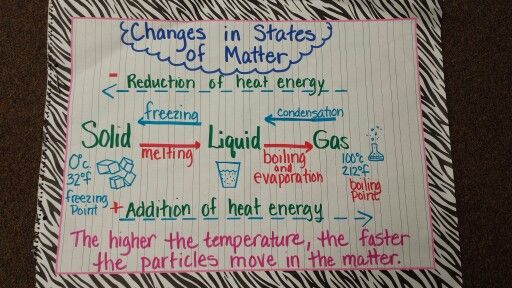 Changes in States
of Matter
- Reduction of heat energy
freezing
condensation
Solid
Liquid
Gas
melting
boiling
and
evaporation
0°c
32°f
freezing
Point
100°c
212°f
boiling
point
+ Addition of heat energy
The higher the temperature, the faster
the particles move in the matter.